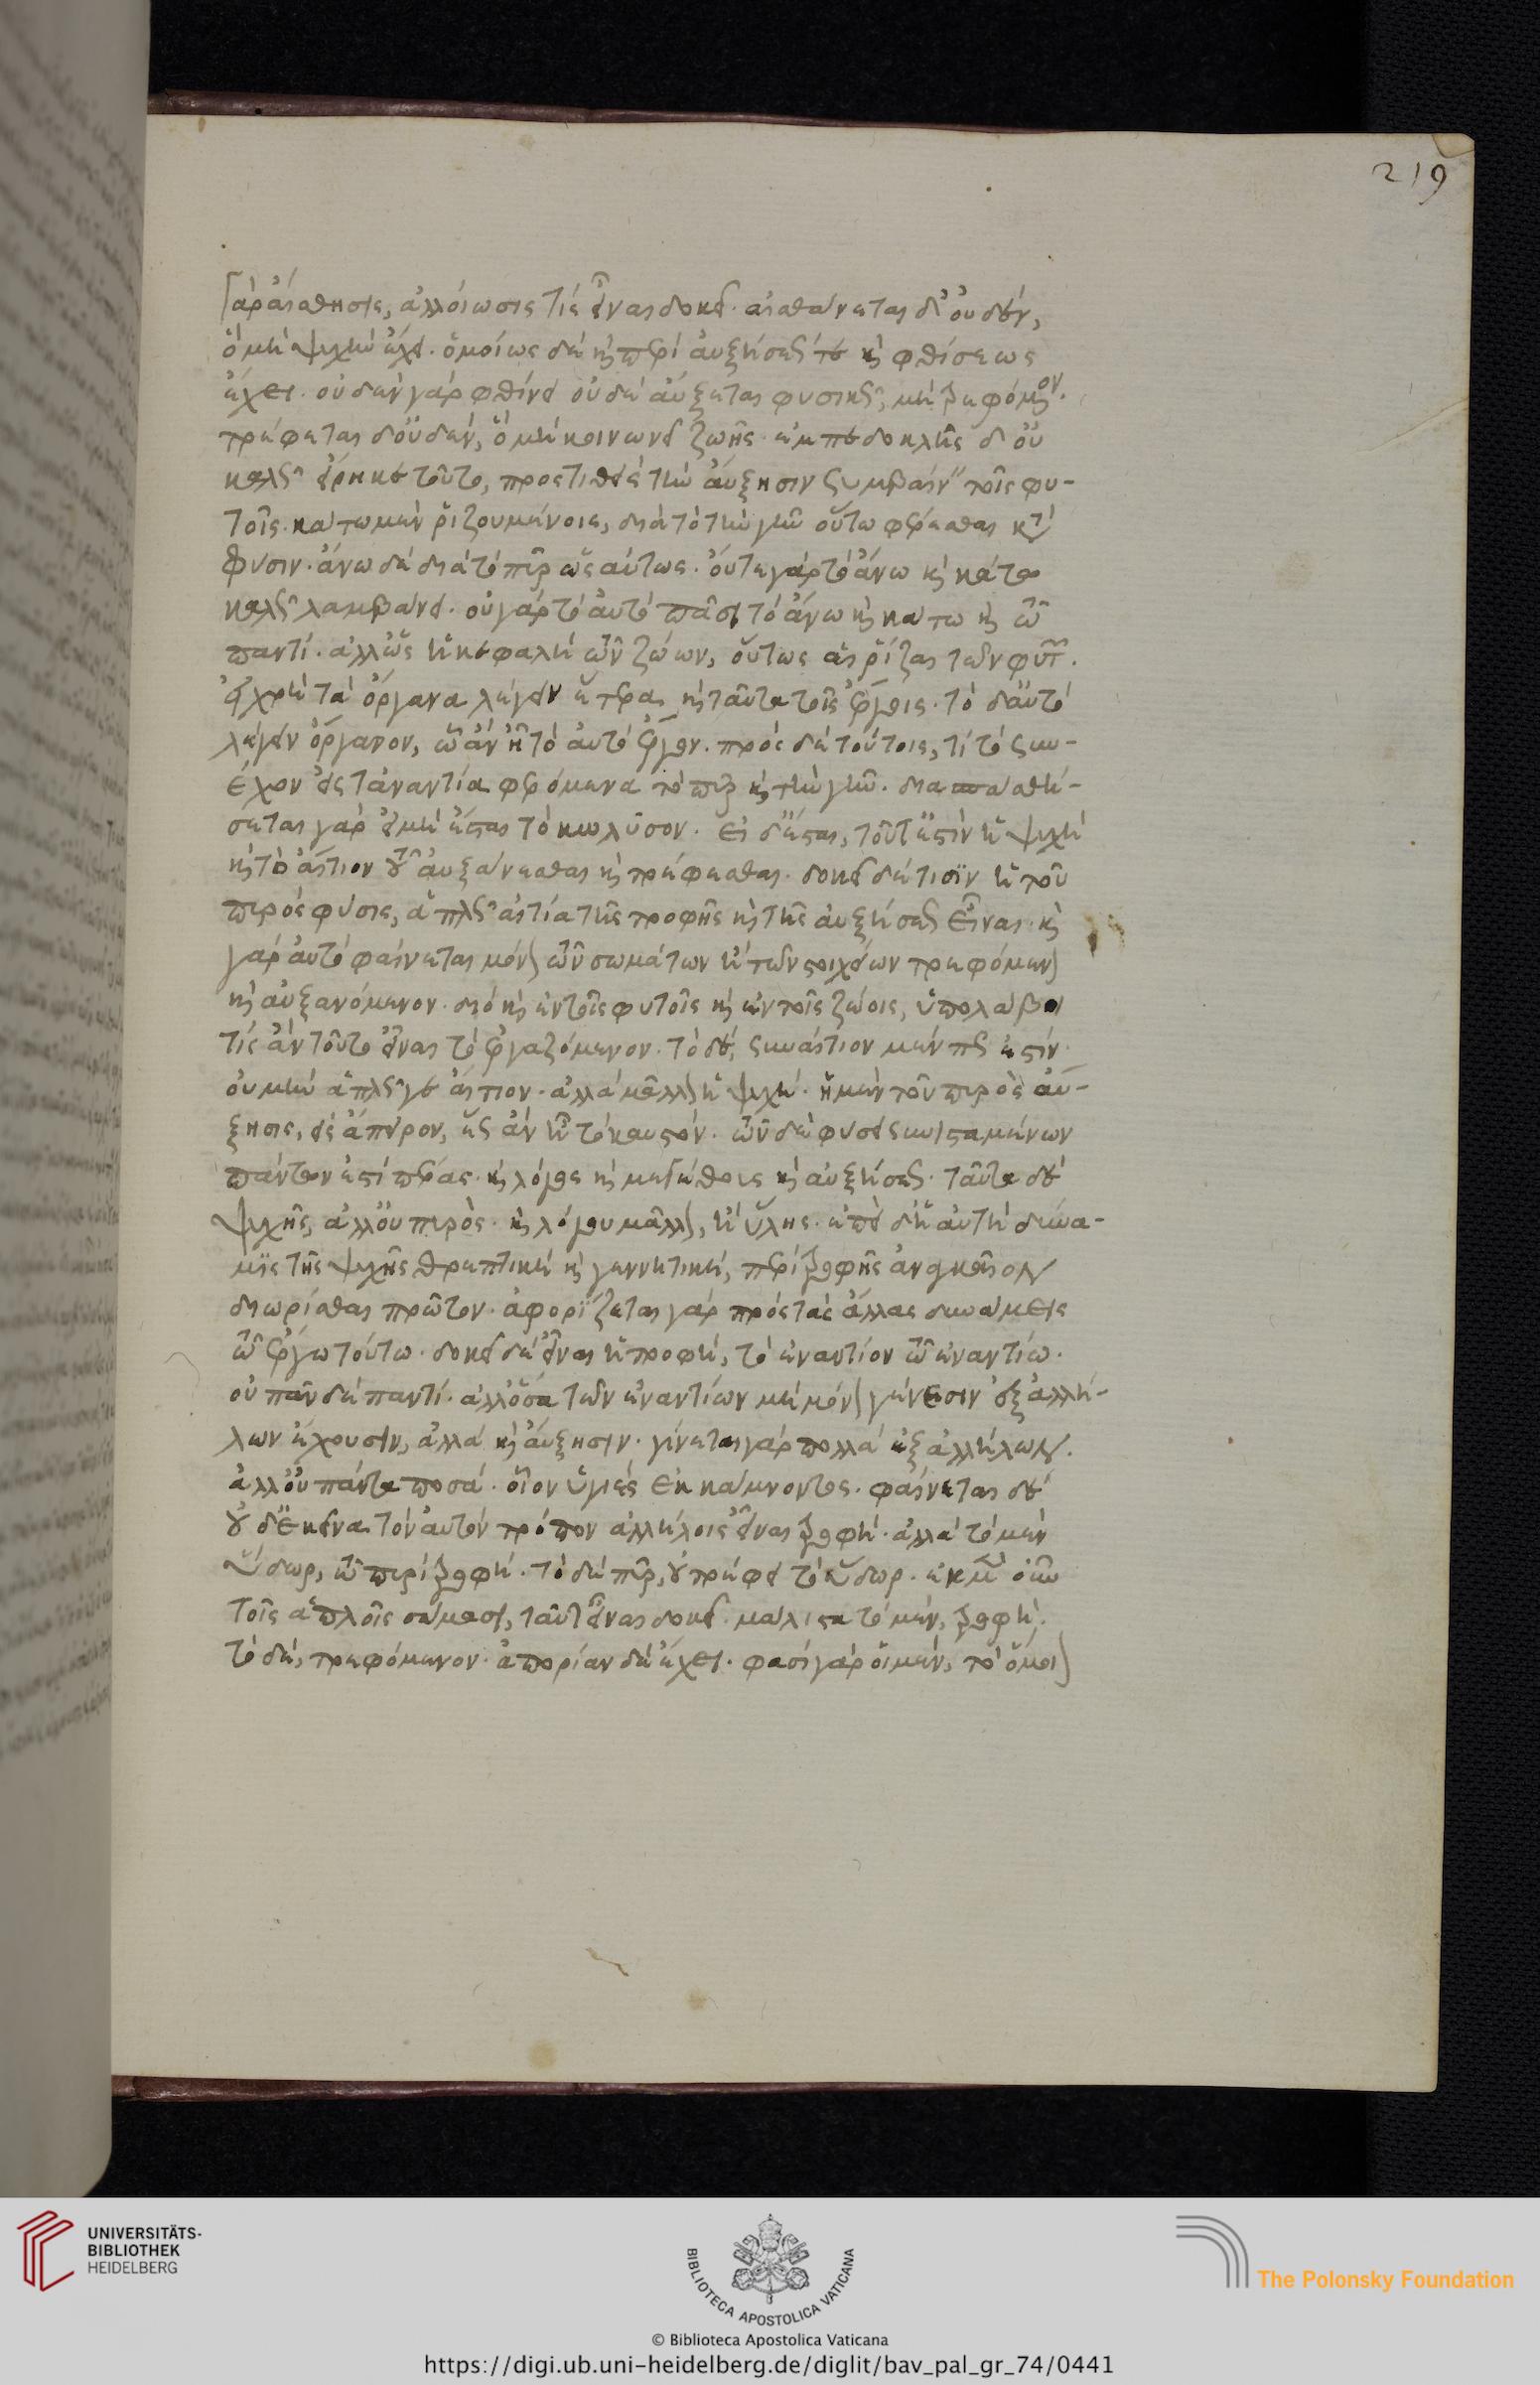 219
γὰρ αἴσθησις, ἀλλοίωσίς τις εἶναι δοκεῖ· αἰσθάνεται δ' οὐδὲν,
ὃ μὴ ψυχὴν ἔχει. ὁμοίως δὲ καὶ περὶ αὐξήσεώς τε καὶ φθίσεως
ἔχει. οὐδὲν γὰρ φθίνει οὐδὲ αὔξεται φυσικῶς, μὴ τρεφόμενον.
τρέφεται δ' οὐδὲν, ὃ μὴ κοινωνεῖ ζωῆς· ἐμπεδοκλῆς δ' οὐ
καλῶς εἴρηκε τοῦτο, προστιθεὶς τὴν αὔξησιν συμβαίνειν τοῖς φυ-
τοῖς· κάτω μὲν ῥιζουμένοις, διὰ τὸ τὴν γῆν οὕτω φέρεσθαι κατὰ
φύσιν. ἄνω δὲ διὰ τὸ πῦρ ὡσαύτως. οὔτε γὰρ τὸ ἄνω καὶ κάτω
καλῶς λαμβάνει. οὐ γὰρ τὸ αὐτὸ πᾶσι τὸ ἄνω καὶ κάτω καὶ τῷ
παντί. ἀλλ' ὡς ἡ κεφαλὴ τῶν ζώων, οὕτως αἱ ῥίζαι τῶν φυτῶν.
εἰ χρὴ τὰ ὄργανα λέγειν ἕτερα καὶ ταῦτα τοῖς ἔργοις. τὸ δ' αὐτὸ
λέγειν ὄργανον, ᾧ ἂν ᾖ τὸ αὐτὸ ἔργον. πρὸς δὲ τούτοις, τί τὸ συν-
έχον εἰς τἀναντία φερόμενα τὸ πῦρ καὶ τὴν γῆν. διασπασθή-
σεται γὰρ εἰ μὴ ἔσται τὸ κωλῦσον. εἰ δ' ἔσται, τοῦτ' ἐστὶν ἡ ψυχὴ
καὶ τὸ αἴτιον τοῦ αὐξάνεσθαι καὶ τρέφεσθαι. δοκεῖ δέ τισιν ἡ τοῦ
πυρὸς φύσις, ἁπλῶς αἰτία τῆς τροφῆς καὶ τῆς αὐξήσεως εἶναι· καὶ
γὰρ αὐτὸ φαίνεται μόνον τῶν σωμάτων ἢ τῶν στοιχείων τρεφόμενον
καὶ αὐξανόμενον. διὸ καὶ ἐν τοῖς φυτοῖς καὶ ἐν τοῖς ζώοις, ὑπολάβοι
τὶς ἂν τοῦτο εἶναι τὸ ἐργαζόμενον. τὸ δὲ, συναίτιον μέν πως ἐστίν·
οὐ μὴν ἁπλῶς γε αἴτιον. ἀλλὰ μᾶλλον ἡ ψυχή. ἡ μὲν τοῦ πυρὸς αὔ-
ξησις, εἰς ἄπειρον, ἕως ἂν ᾖ τὸ καυστόν. τῶν δὲ φύσει συνισταμένων
πάντων ἐστὶ πέρας· καὶ λόγος καὶ μεγέθους καὶ αὐξήσεως. ταῦτα δὲ
ψυχῆς, ἀλλ' οὐ πυρὸς· καὶ λόγου μᾶλλον, ἢ ὕλης. ἐπεὶ δ' ἡ αὐτὴ δύνα-
μις τῆς ψυχῆς θρεπτικὴ καὶ γεννητικὴ, περὶ τροφῆς ἀναγκαῖον
διωρίσθαι πρῶτον. ἀφορίζεται γὰρ πρὸς τὰς ἄλλας δυνάμεις
τῷ ἔργῳ τούτῳ. δοκεῖ δὲ εἶναι ἡ τροφὴ, τὸ ἐναντίον τῷ ἐναντίῳ.
οὐ πᾶν δὲ παντί. ἀλλ' ὅσα τῶν ἐναντίων μὴ μόνον γένεσιν ἐξ ἀλλή-
λων ἔχουσιν, ἀλλὰ καὶ αὔξησιν. γίνεται γὰρ πολλὰ ἐξ ἀλλήλων.
ἀλλ' οὐ πάντα ποσά. οἷον ὑγιὲς ἐκ κάμνοντος. φαίνεται δὲ
οὐδ' ἐκεῖνα τὸν αὐτὸν τρόπον ἀλλήλοις εἶναι τροφή. ἀλλὰ τὸ μὲν
ὕδωρ, τῷ πυρὶ τροφή. τὸ δὲ πῦρ, οὐ τρέφει τὸ ὕδωρ. ἐν μὲν οὖν
τοῖς ἁπλοῖς σώμασι, ταῦτ' εἶναι δοκεῖ μάλιστα τὸ μὲν, τροφή.
τὸ δὲ, τρεφόμενον. ἀπορίαν δὲ ἔχει. φασὶ γὰρ οἱ μὲν, τὸ ὅμοιον
UNIVERSITÄTS-
BIBLIOTHEK
HEIDELBERG
BIBLIOTECA APOSTOLICA VATICANA
The Polonsky Foundation
© Biblioteca Apostolica Vaticana
https://digi.ub.uni-heidelberg.de/diglit/bav_pal_gr_74/0441